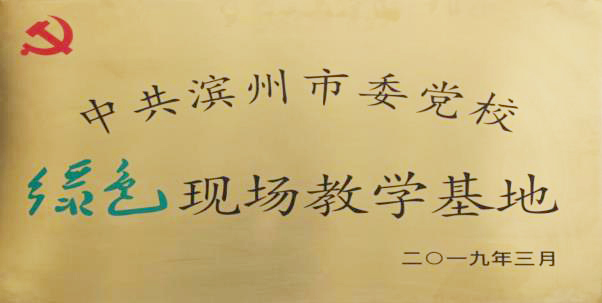 中共滨州市委党校
绿色现场教学基地
二〇一九年三月